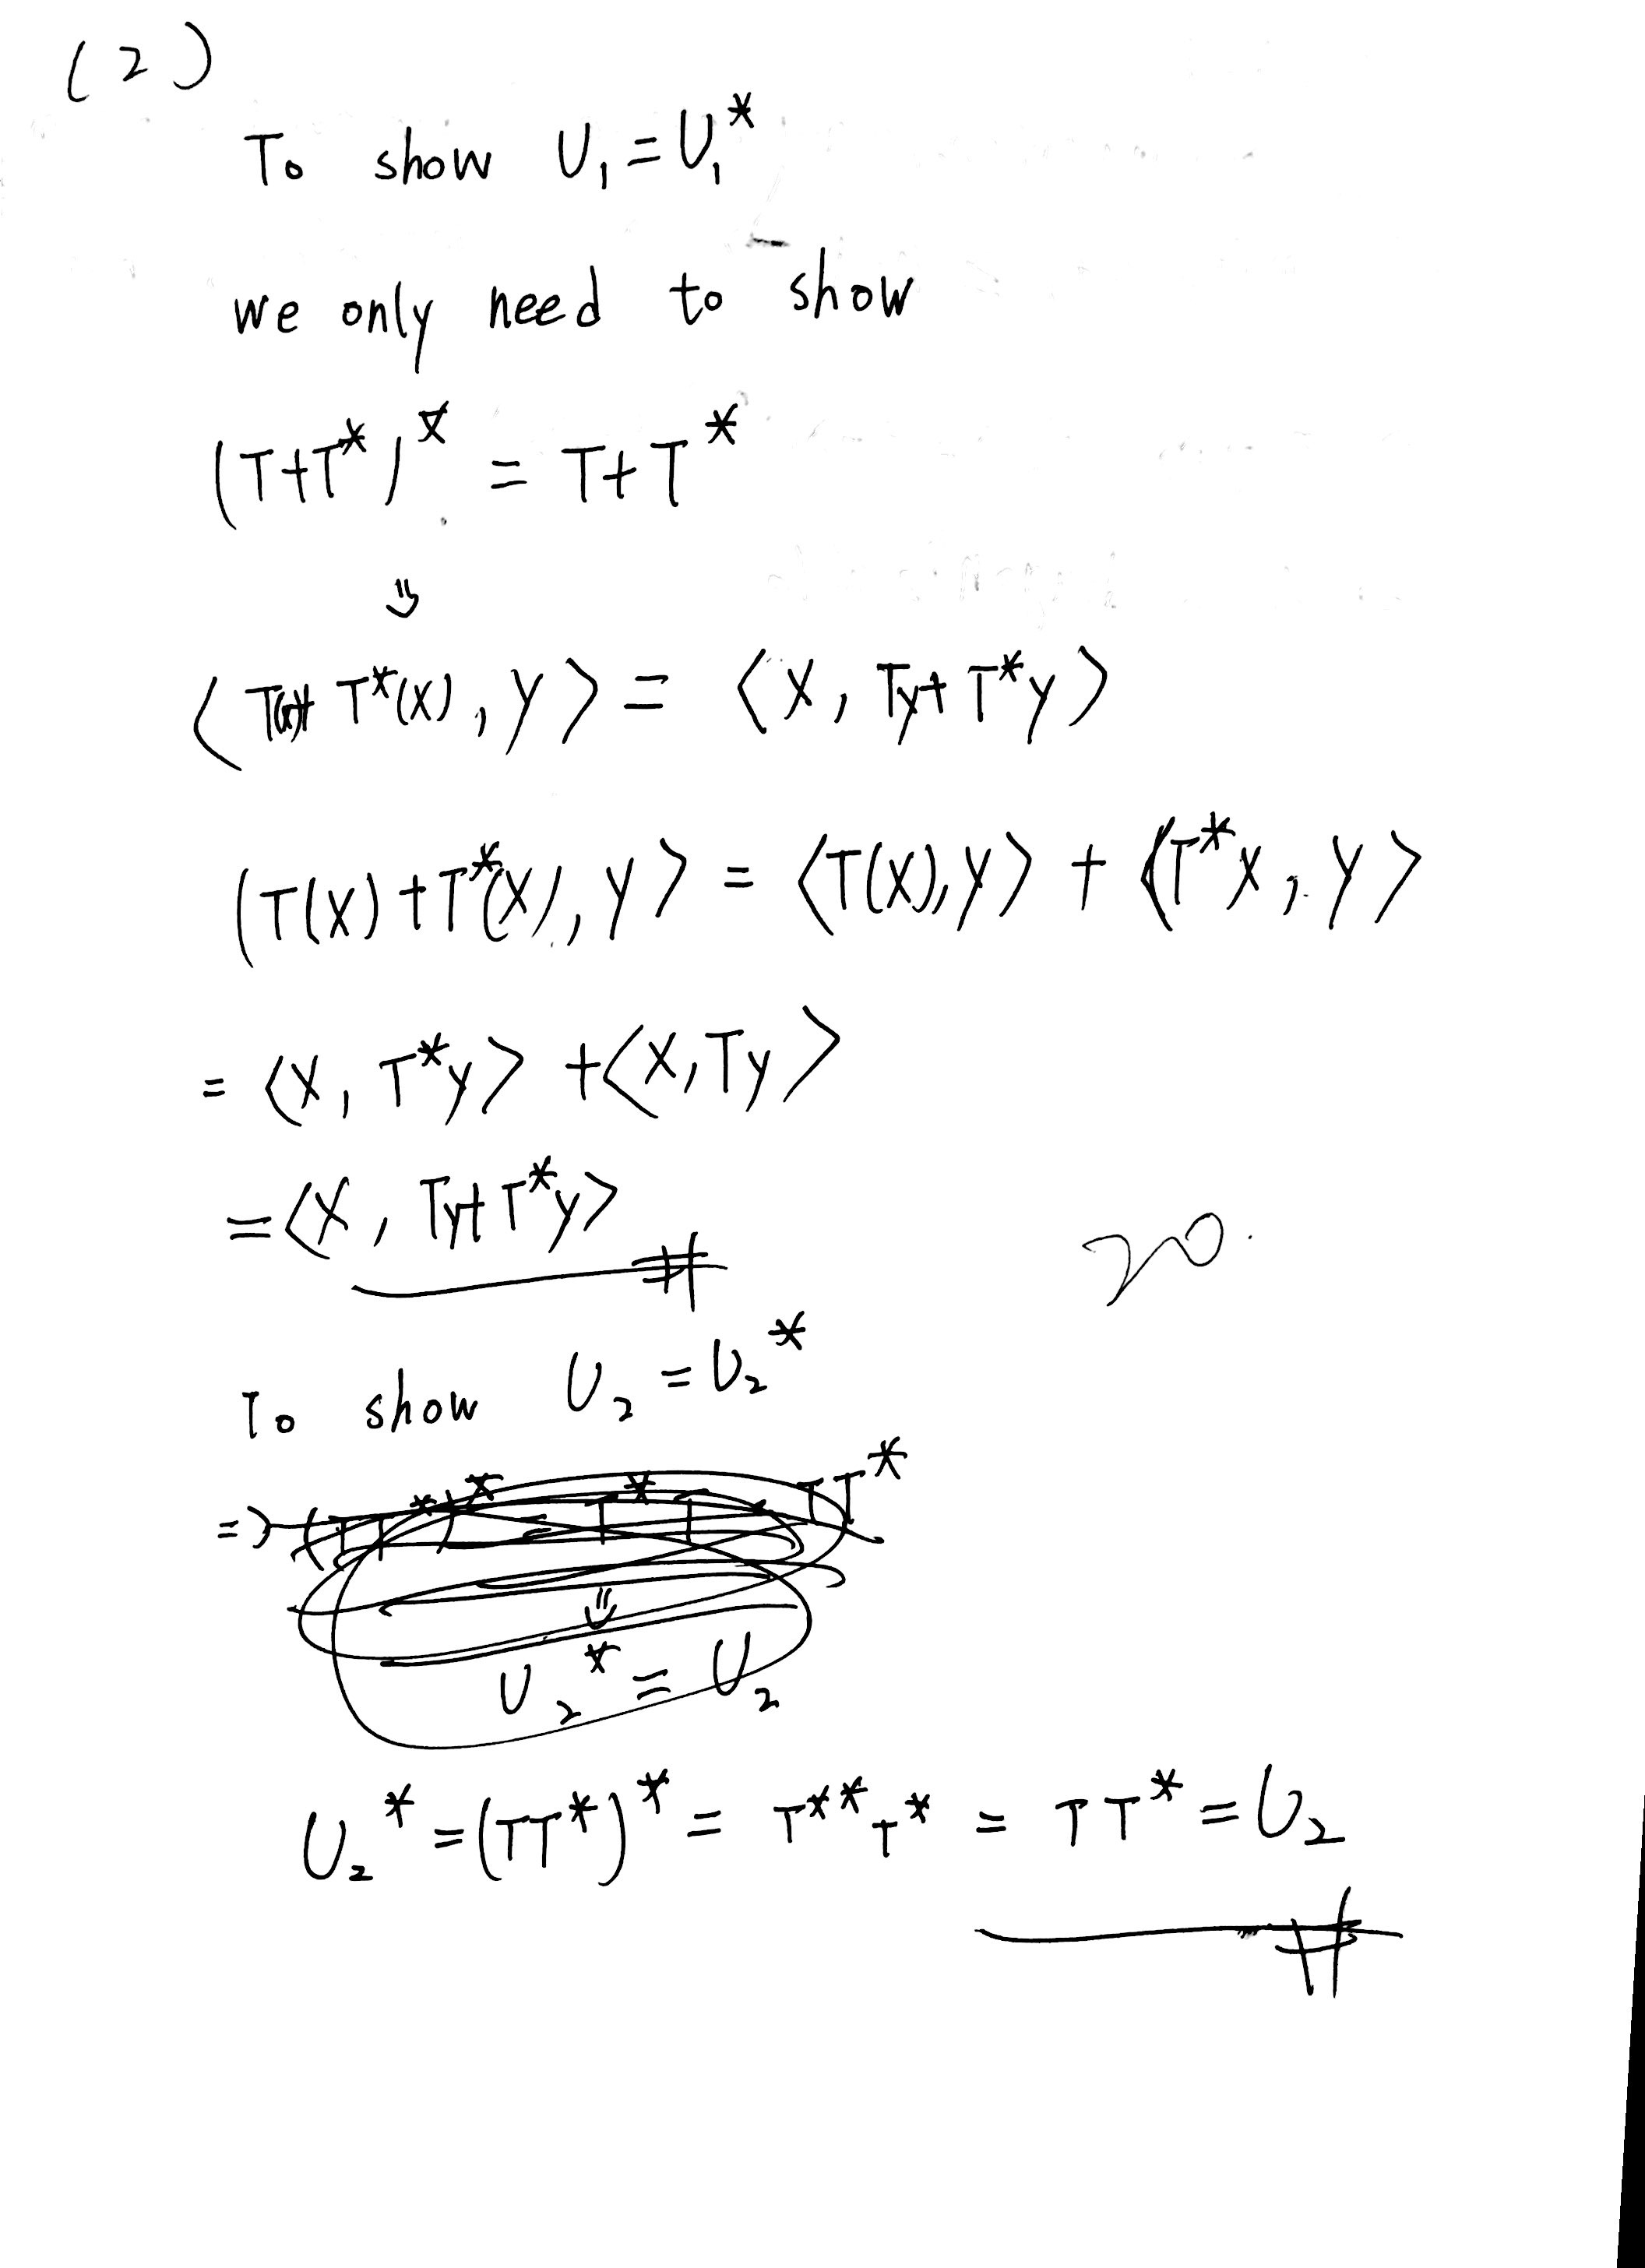 (2)
To show U₁ = U₁*
we only need to show
(T+T*)* = T+T*
⇓
⟨T(x)+T*(x), y⟩ = ⟨x, Ty+T*y⟩
(T(x)+T*(x), y⟩ = ⟨T(x), y⟩ + ⟨T*x, y⟩
= ⟨x, T*y⟩ + ⟨x, Ty⟩
= ⟨x, Ty+T*y⟩ #
20.
To show U₂ = U₂*
=>
⇓
U₂* = U₂
U₂* = (TT*)* = T**T* = TT* = U₂
#